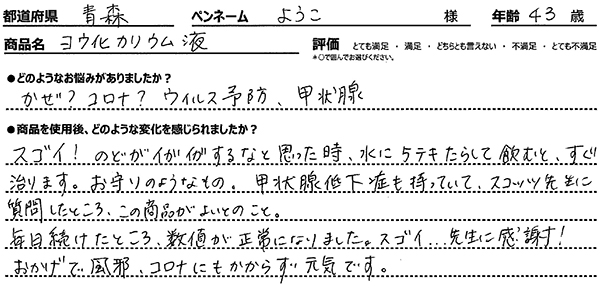 都道府県 青森 ペンネーム ようこ 様 年齢 43 歳
商品名 ヨウ化カリウム液 評価 とても満足 ・ 満足 ・ どちらとも言えない ・ 不満足 ・ とても不満足
*○で囲んでお選びください。
●どのようなお悩みがありましたか？
かぜ？コロナ？ ウイルス予防、甲状腺
●商品を使用後、どのような変化を感じられましたか？
スゴイ！のどがイガイガするなと思った時、水に5テキたらして飲むと、すぐ
治ります。お守りのようなもの。甲状腺低下症も持っていて、スコッツ先生に
質問したところ、この商品がよいとのこと。
毎日続けたところ、数値が正常になりました。スゴイ…先生に感謝！
おかげで風邪、コロナにもかからず元気です。